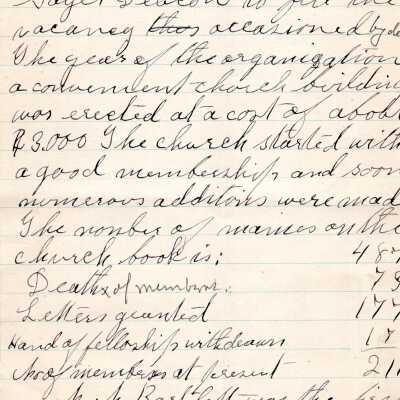 vacancy thus occasioned by de
The year of the organization
a convenient church building
was erected at a cost of about
$3.000 The church started with
a good membership and soon
numerous additions were mad
The nomber of names on the
church book is: 48
Deaths of members. 7
Letters granted 177
Hand of fellowship withdrawn 1
No of members at present 21